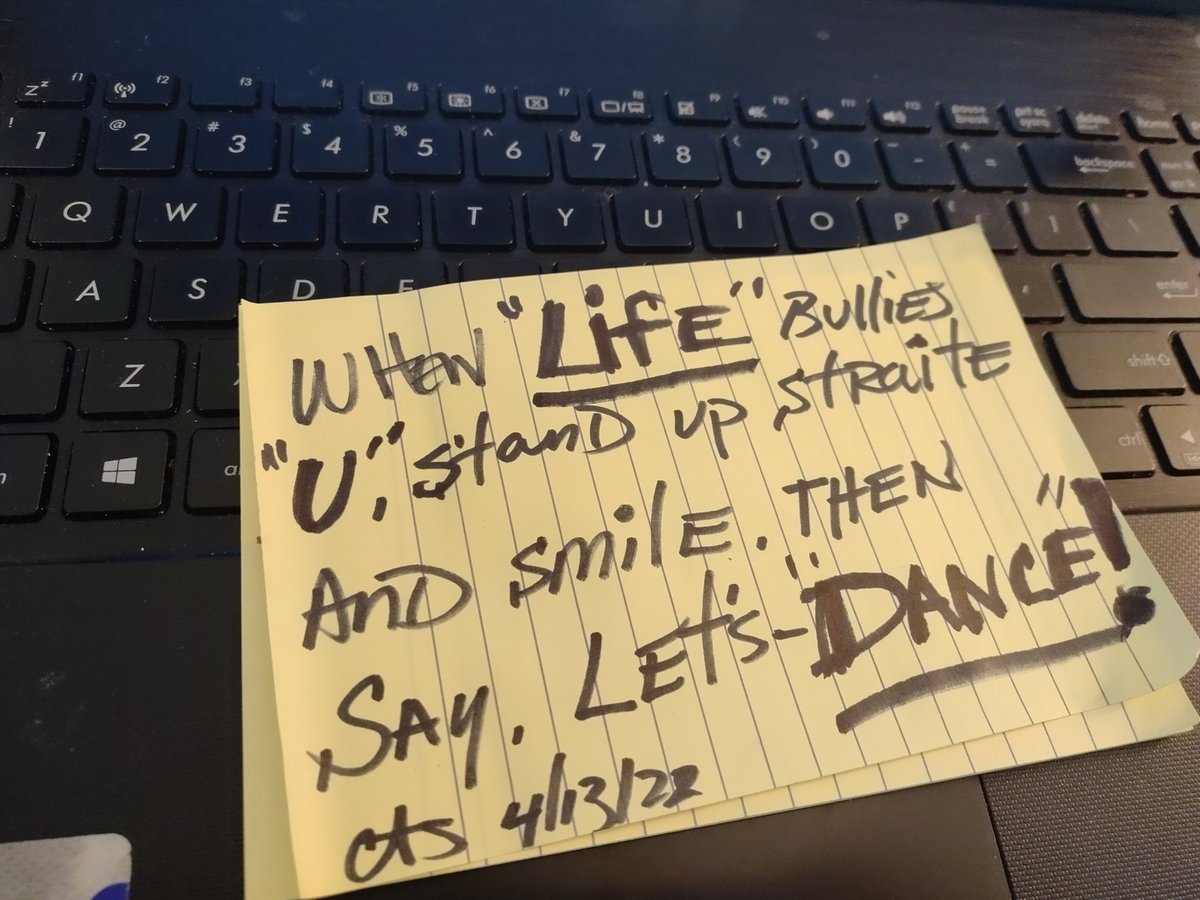 z² f1 f2 f3 f4 f5 f6 f7 f8 f9 f10 f11 f12 pause break prt sc delete home
! 1 @ 2 # 3 $ 4 % 5 ^ 6 & 7 * 8 ( 9 ) 0 - + = backspace
Q W E R T Y U I O P
A S D F enter
Z shift
ctrl
WHEN "LifE" BulliES
"U", stanD up stRaitE
AnD smilE. THEN
SAY. LEt's - "DANCE"!
cts 4/13/22